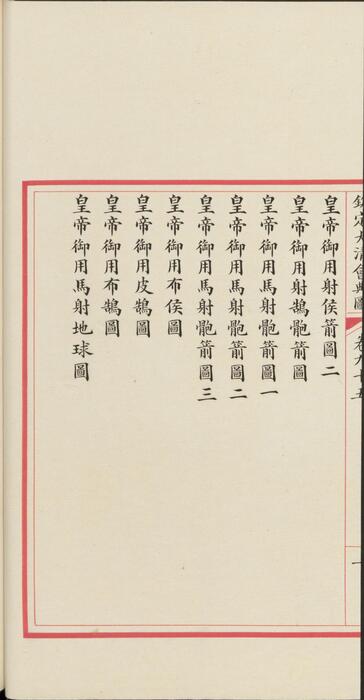 欽定大清會典圖 卷九十五 一
皇帝御用射侯箭圖二
皇帝御用射鵠骲箭圖
皇帝御用馬射骲箭圖一
皇帝御用馬射骲箭圖二
皇帝御用馬射骲箭圖三
皇帝御用布侯圖
皇帝御用皮鵠圖
皇帝御用布鵠圖
皇帝御用馬射地球圖